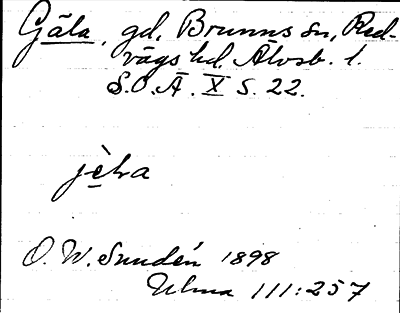 Gäla, gd, Brunns sn, Red-
vägs hd. Älvsb. l.
S.O.Ä. X s. 22.
O. W. Sundén 1898
Ulma 111:257